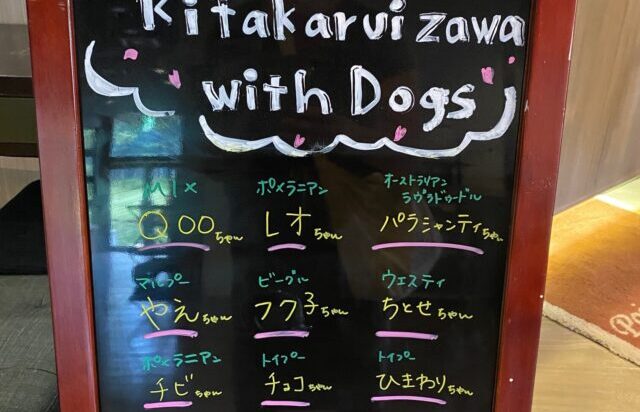 Kitakaruizawa
with Dogs
MIX
Qooちゃん
ポメラニアン
レオちゃん
オーストラリアン
ラヴラドゥードル
パラシャンティちゃん
マルプー
やえちゃん
ビーグル
フク子ちゃん
ウェスティ
ちとせちゃん
ポメラニアン
チビちゃん
トイプー
チョコちゃん
トイプー
ひまわりちゃん